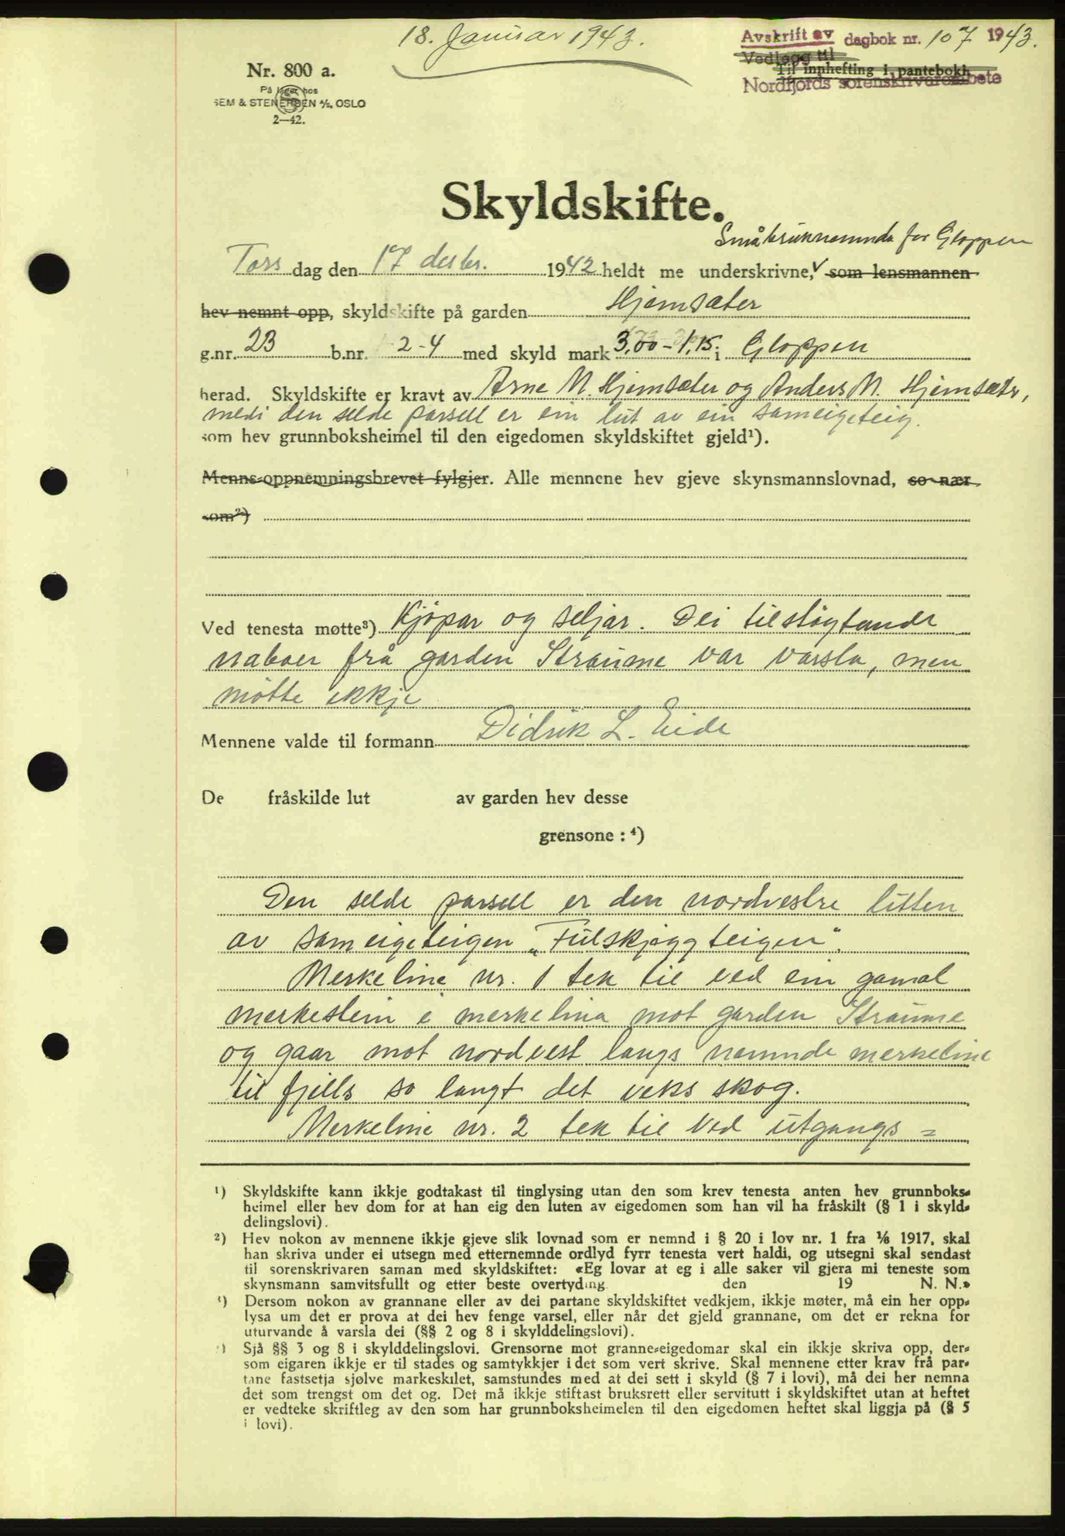 18. Januar 1943.
Avskrift av dagbok nr. 107 1943.
Vedlegg til
Til innhefting i pantebokh
Nordfjords sorenskrivarembete
Nr. 800 a.
På lager hos
SEM & STENERSEN A/S, OSLO
2—42.
Skyldskifte.
Småbruknemnda for Gloppen
Tors dag den 17 desbr. 1942 heldt me underskrivne, som lensmannen
hev nemnt opp, skyldskifte på garden Hjemsæter
g.nr. 23 b.nr. 2-4 med skyld mark 3,00-1,15 i Gloppen
herad. Skyldskifte er kravt av Arne M. Hjemsæter og Anders M. Hjemsætr,
medi den selde parsell er ein lut av ein sameigeteig.
som hev grunnboksheimel til den eigedomen skyldskiftet gjeld¹).
Menns-oppnemningsbrevet fylgjer. Alle mennene hev gjeve skynsmannslovnad, so nær
som²)
Ved tenesta møtte³) Kjöpar og seljar. Dei tilstøytande
naboer frå garden Straume var varsla, men
møtte ikkje
Mennene valde til formann Didrik L. Eide
De fråskilde lut av garden hev desse
grensone : ⁴)
Den selde parsell er den nordvestre luten
av sameigeteigen „Fulskjeggteigen“.
Merkeline nr. 1 tek til ved ein gamal
merkestein i merkelina mot garden Straume
og gaar mot nordvest langs nemnde merkeline
til fjells so langt det veks skog.
Merkeline nr. 2 tek til ved utgangs=
¹) Skyldskifte kann ikkje godtakast til tinglysing utan den som krev tenesta anten hev grunnboks-
heimel eller hev dom for at han eig den luten av eigedomen som han vil ha fråskilt (§ 1 i skyld-
delingslovi).
²) Hev nokon av mennene ikkje gjeve slik lovnad som er nemnd i § 20 i lov nr. 1 fra 1/6 1917, skal
han skriva under ei utsegn med etternemnde ordlyd fyrr tenesta vert haldi, og utsegni skal sendast
til sorenskrivaren saman med skyldskiftet: «Eg lovar at eg i alle saker vil gjera mi teneste som
skynsmann samvitsfullt og etter beste overtyding. den 19 N. N.»
³) Dersom nokon av grannane eller av dei partane skyldskiftet vedkjem, ikkje møter, må ein her opp-
lysa um det er prova at dei hev fenge varsel, eller når det gjeld grannane, om det er rekna for
uturvande å varsla dei (§§ 2 og 8 i skylddelingslovi).
⁴) Sjå §§ 3 og 8 i skylddelingslovi. Grensorne mot granne-eigedomar skal ein ikkje skriva opp, der-
som eigaren ikkje er til stades og samtykkjer i det som vert skrive. Skal mennene etter krav frå par-
tane fastsetja sjølve markeskilet, samstundes med at dei sett i skyld (§ 7 i lovi), må dei her nemna
det som trengst om det og. Det må ikkje stiftast bruksrett eller servitutt i skyldskiftet utan at heftet
er vedteke skriftleg av den som har grunnboksheimelen til den eigedomen heftet skal liggja på (§ 5
i lovi).